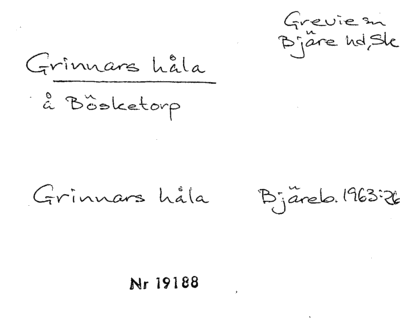 Grevie sn
Bjäre hd, Sk
Grinnars håla
å Bösketorp
Grinnars håla Bjäreb. 1963:26
Nr 19188